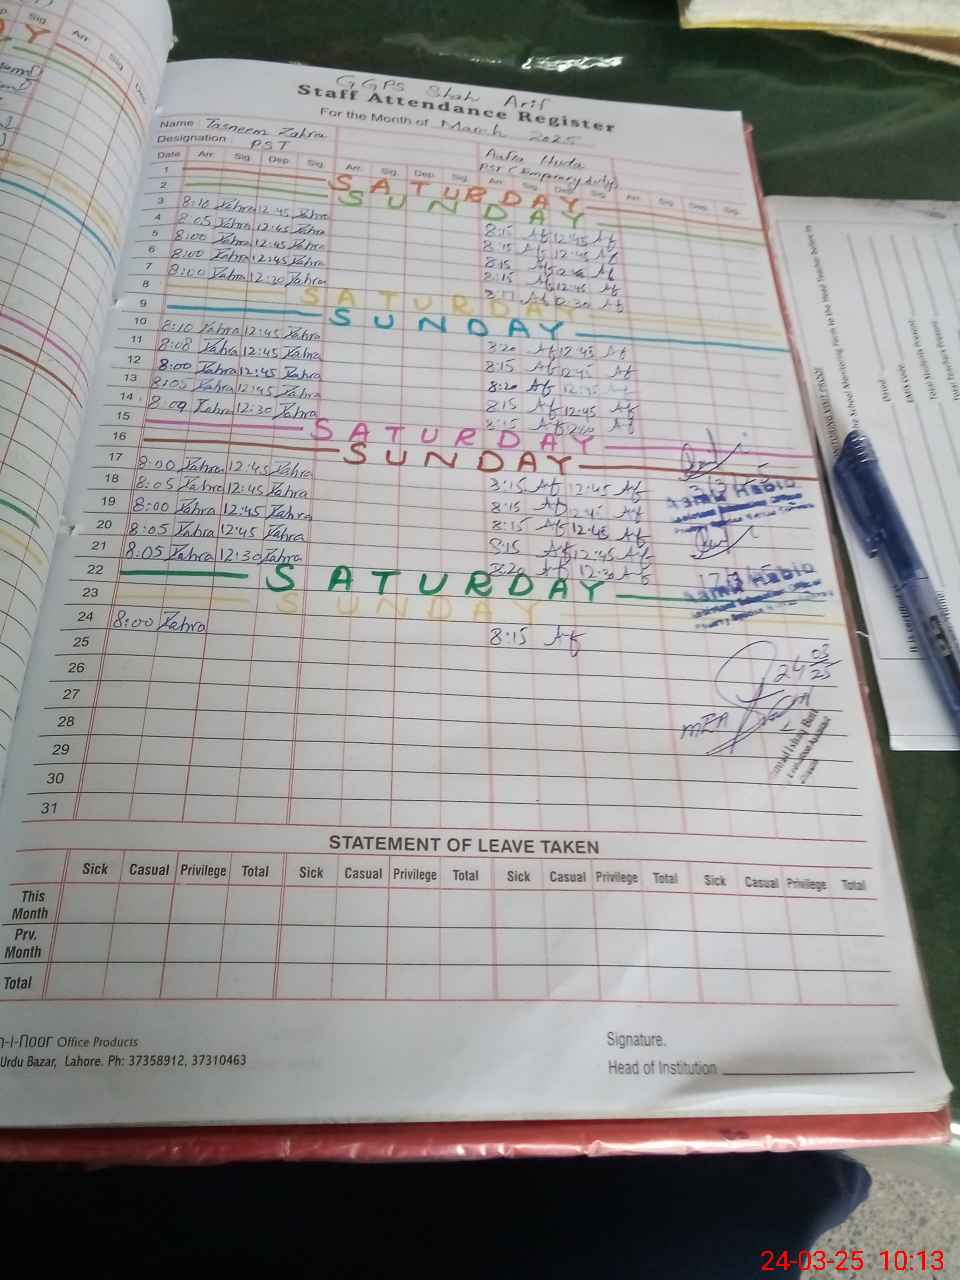 GGPS Shah Arif
Staff Attendance Register
For the Month of March 2025
Name: Tasneem Zahra
Designation: PST
Huda
PST (Temporary duty)
Date Arr. Sig. Dep. Sig. Arr. Sig. Dep. Sig. Arr. Sig. Dep. Sig. Arr. Sig. Dep. Sig.
1 SATURDAY
2 SUNDAY
3 8:10 Zahra 12:45 Zahra 8:15 Af 12:45 Af
4 8:05 Zahra 12:45 Zahra 8:15 Af 12:45 Af
5 8:00 Zahra 12:45 Zahra 8:15 Af 12:45 Af
6 8:00 Zahra 12:45 Zahra 8:15 Af 12:45 Af
7 8:00 Zahra 12:30 Zahra Af 12:30 Af
8 SATURDAY
9 SUNDAY
10 8:10 Zahra 12:45 Zahra 8:20 Af 12:45 Af
11 8:08 Zahra 12:45 Zahra 8:15 Af 12:45 Af
12 8:00 Zahra 12:45 Zahra 8:20 Af 12:45 Af
13 8:05 Zahra 12:45 Zahra 8:15 Af 12:45 Af
14 8:09 Zahra 12:30 Zahra 8:15 Af Af
15 SATURDAY
16 SUNDAY
17 8:00 Zahra 12:45 Zahra 8:15 Af 12:45 Af
18 8:05 Zahra 12:45 Zahra 8:15 Af 12:45 Af
19 8:00 Zahra 12:45 Zahra 8:15 Af 12:45 Af
20 8:05 Zahra 12:45 Zahra 8:15 Af 12:45 Af
21 8:05 Zahra 12:30 Zahra 8:20 Af 12:30 Af
22 SATURDAY
23 SUNDAY
24 8:00 Zahra 8:15 Af
25
26
27
28
29
30
31
Habib
Habib
24 03/25
MEA
STATEMENT OF LEAVE TAKEN
Sick Casual Privilege Total Sick Casual Privilege Total Sick Casual Privilege Total Sick Casual Privilege Total
This Month
Prv. Month
Total
-i-noor Office Products
Urdu Bazar, Lahore. Ph: 37358912, 37310463
Signature.
Head of Institution
24-03-25 10:13